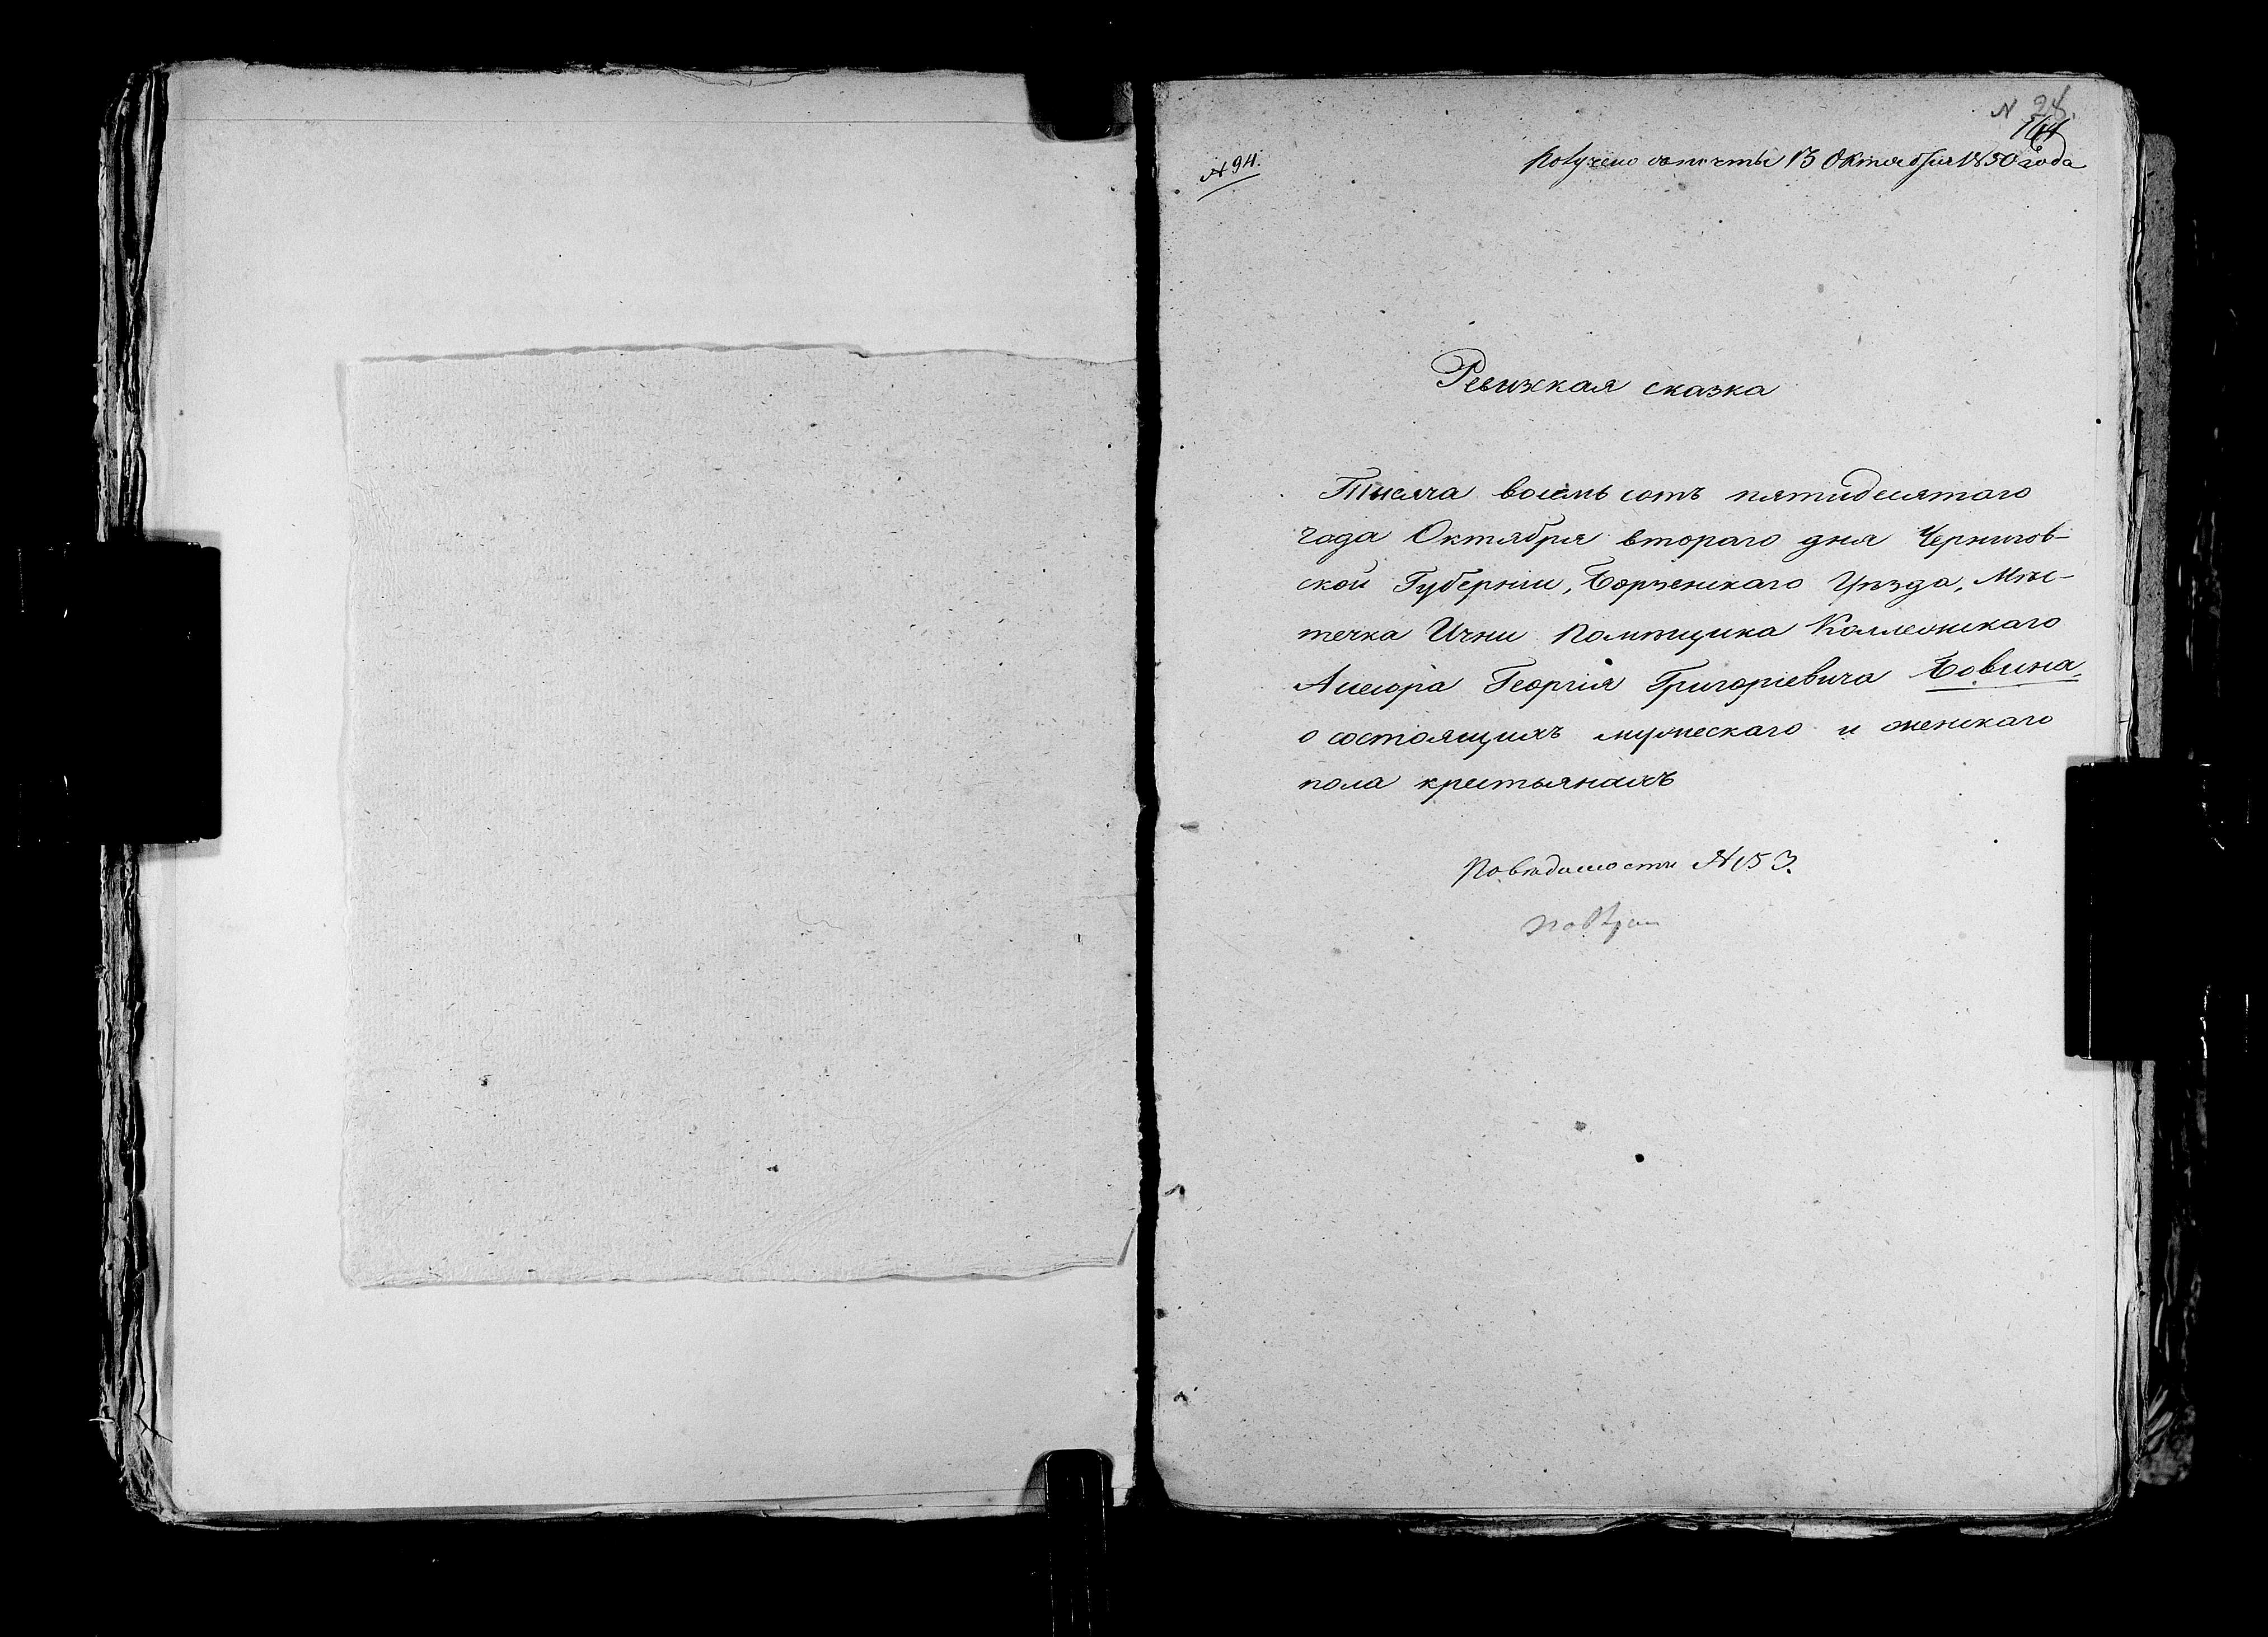 N 24.
164
№ 94.
Получено съ почты 13 Октября 1850 года
Ревижкая сказка
Тысяча восемь сотъ пятидесятаго
года Октября втораго дня Чернигов-
ской Губерніи, Борзенскаго Уѣзда, Мѣс-
течка Ични Помѣщика Коллежскаго
Асесора Георгія Григоріевича Бовина,
о состоящихъ мужескаго и женскаго
пола крестьянахъ
По вѣдомости № 153.